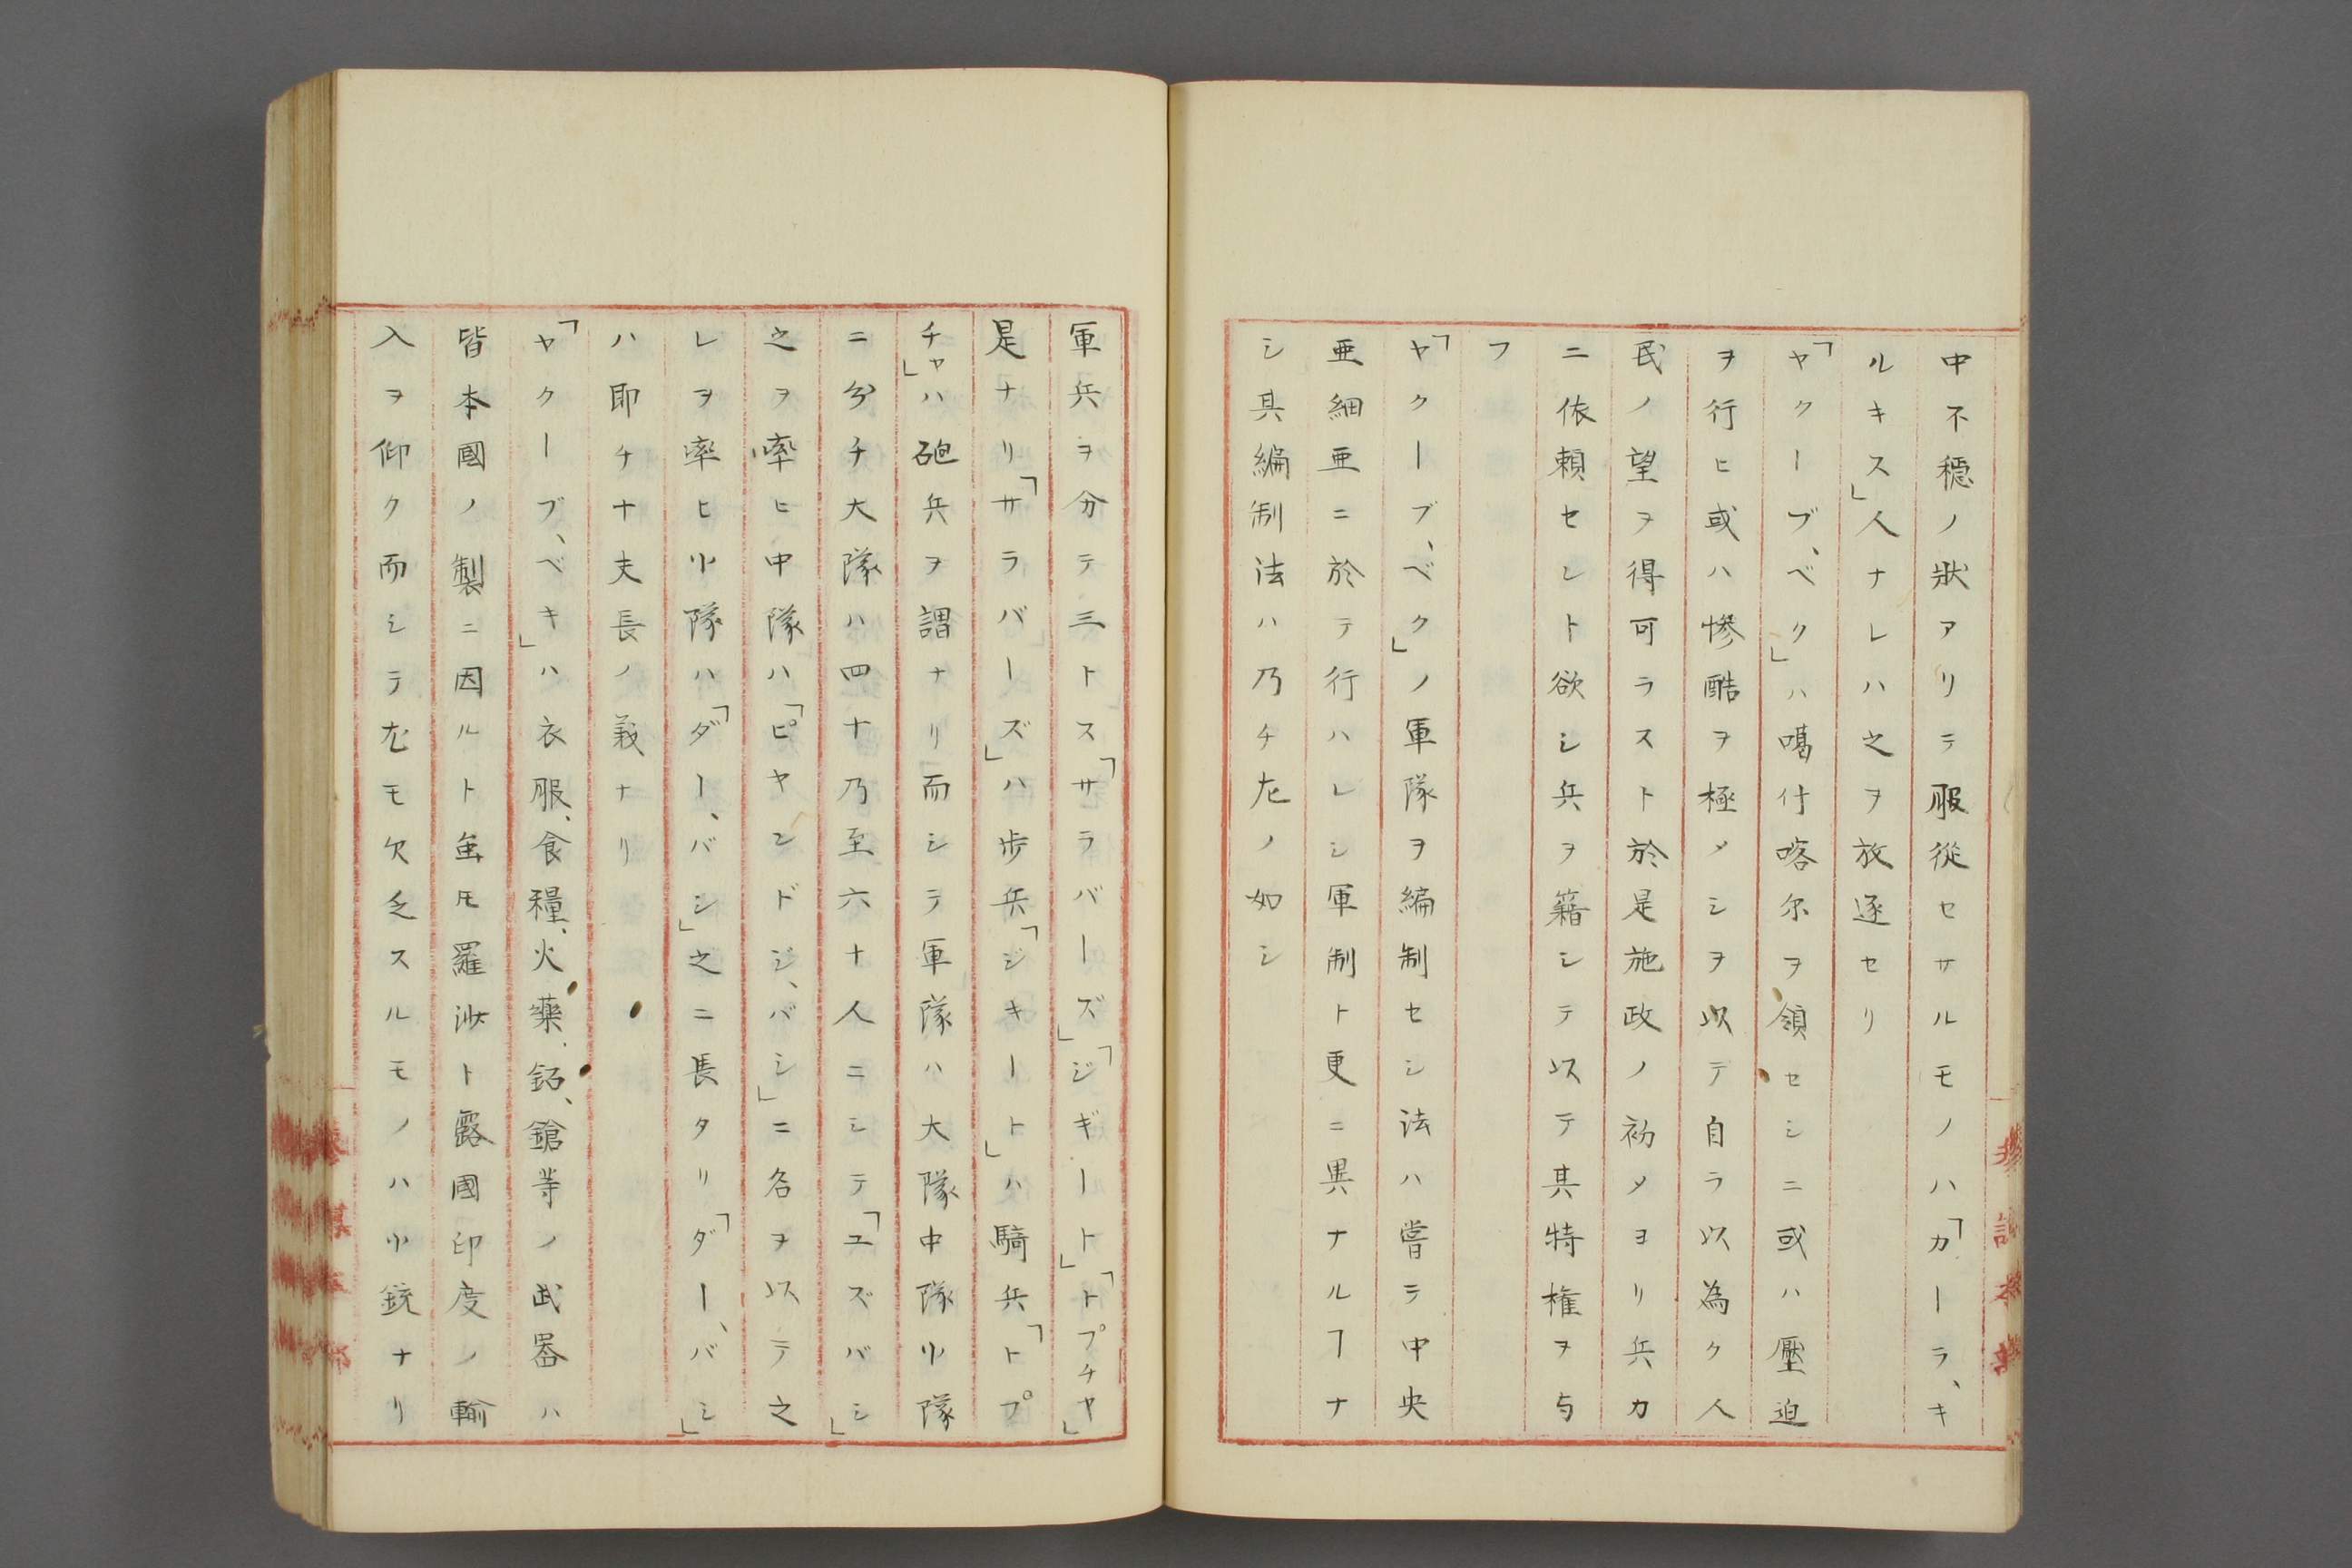 中不穏ノ狀アリテ服從セサルモノハ「カーラ、キ
ルキス」人ナレハ之ヲ放逐セリ
「ヤクーブ、ベク」ハ噶什喀尔ヲ領セシニ或ハ壓迫
ヲ行ヒ或ハ惨酷ヲ極メシヲ以テ自ラ以為ク人
民ノ望ヲ得可ラスト於是施政ノ初メヨリ兵カ
ニ依頼セント欲シ兵ヲ籍シテ以テ其特権ヲ与
フ
「ヤクーブ、ベク」ノ軍隊ヲ編制セシ法ハ嘗テ中央
亜細亜ニ於テ行ハレシ軍制ト更ニ異ナルヿナ
シ其編制法ハ乃チ左ノ如シ
軍兵ヲ分テ三トス「サラバーズ」「ジギート」「トプチヤ」
是ナリ「サラバーズ」ハ歩兵「ジキート」ハ騎兵「トプ
チヤ」ハ砲兵ヲ謂ナリ而シテ軍隊ハ大隊中隊小隊
ニ分チ大隊ハ四十乃至六十人ニシテ「ユズバシ」
之ヲ率ヒ中隊ハ「ピヤンドジ、バシ」ニ名ヲ以テ之
レヲ率ヒ小隊ハ「ダー、バシ」之ニ長タリ「ダー、バシ」
ハ即チ十夫長ノ義ナリ
「ヤクーブ、ベキ」ハ衣服、食糧、火藥、銃、鎗等ノ武器ハ
皆本國ノ製ニ因ルト雖𪜈羅沙ト露國印度ノ輸
入ヲ仰ク而シテ尤モ欠乏スルモノハ小銃ナリ